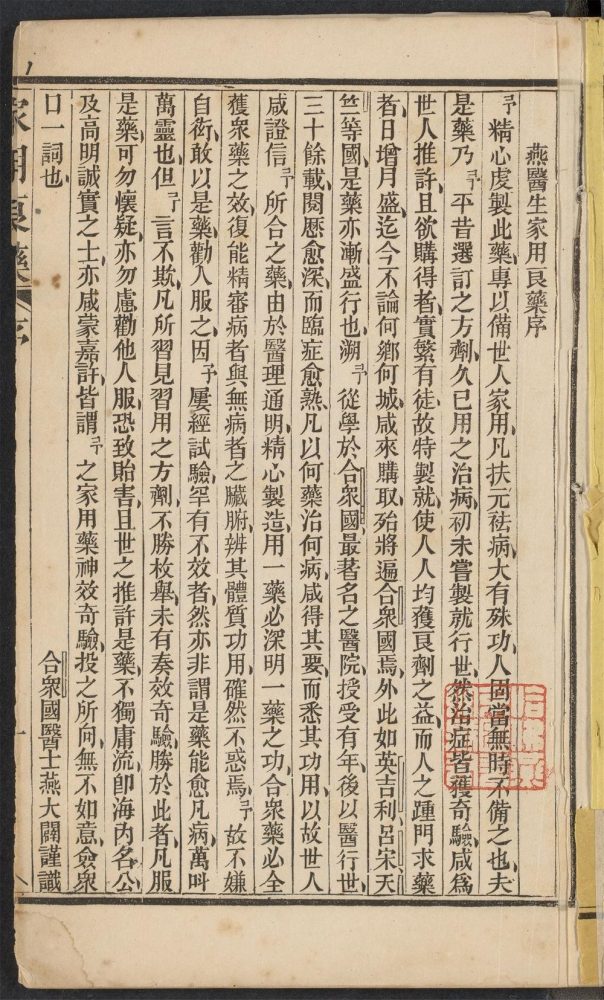 燕醫生家用良藥序
予精心虔製此藥、專以備世人家用、凡扶元祛病、大有殊功、人固當無時不備之也、夫
是藥乃予平昔選訂之方劑、久已用之治病、初未嘗製就行世、然治症皆獲奇驗、咸爲
世人推許、且欲購得者、實繁有徒、故特製就、使人人均獲良劑之益、而人之踵門求藥
者、日增月盛、迄今不論何鄉何城、咸來購取、殆將遍合衆國焉、外此如英吉利、呂宋、天
竺等國、是藥亦漸盛行也、溯予從學於合衆國最著名之醫院、授受有年、後以醫行世、
三十餘載、閱歷愈深、而臨症愈熟、凡以何藥治何病、咸得其要、而悉其功用、以故世人
咸證信予所合之藥、由於醫理通明、精心製造、用一藥必深明一藥之功、合衆藥必全
獲衆藥之效、復能精審病者與無病者之臟腑、辨其體質功用、確然不惑焉、予故不嫌
自衒、敢以是藥、勸人服之、因予屢經試驗、罕有不效者、然亦非謂是藥能愈凡病、萬呌
萬靈也、但予言不欺、凡所習見習用之方劑、不勝枚舉、未有奏效奇驗、勝於此者、凡服
是藥、可勿懷疑、亦勿慮勸他人服、恐致貽害、且世之推許是藥、不獨庸流、卽海內名公
及高明誠實之士、亦咸蒙嘉許、皆謂予之家用藥神效奇驗、投之所向、無不如意、僉衆
口一詞也、
合衆國醫士燕大闢謹識
家用良藥 序
一